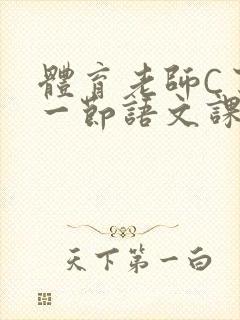 體育老師C
一節語文課
天下第一白